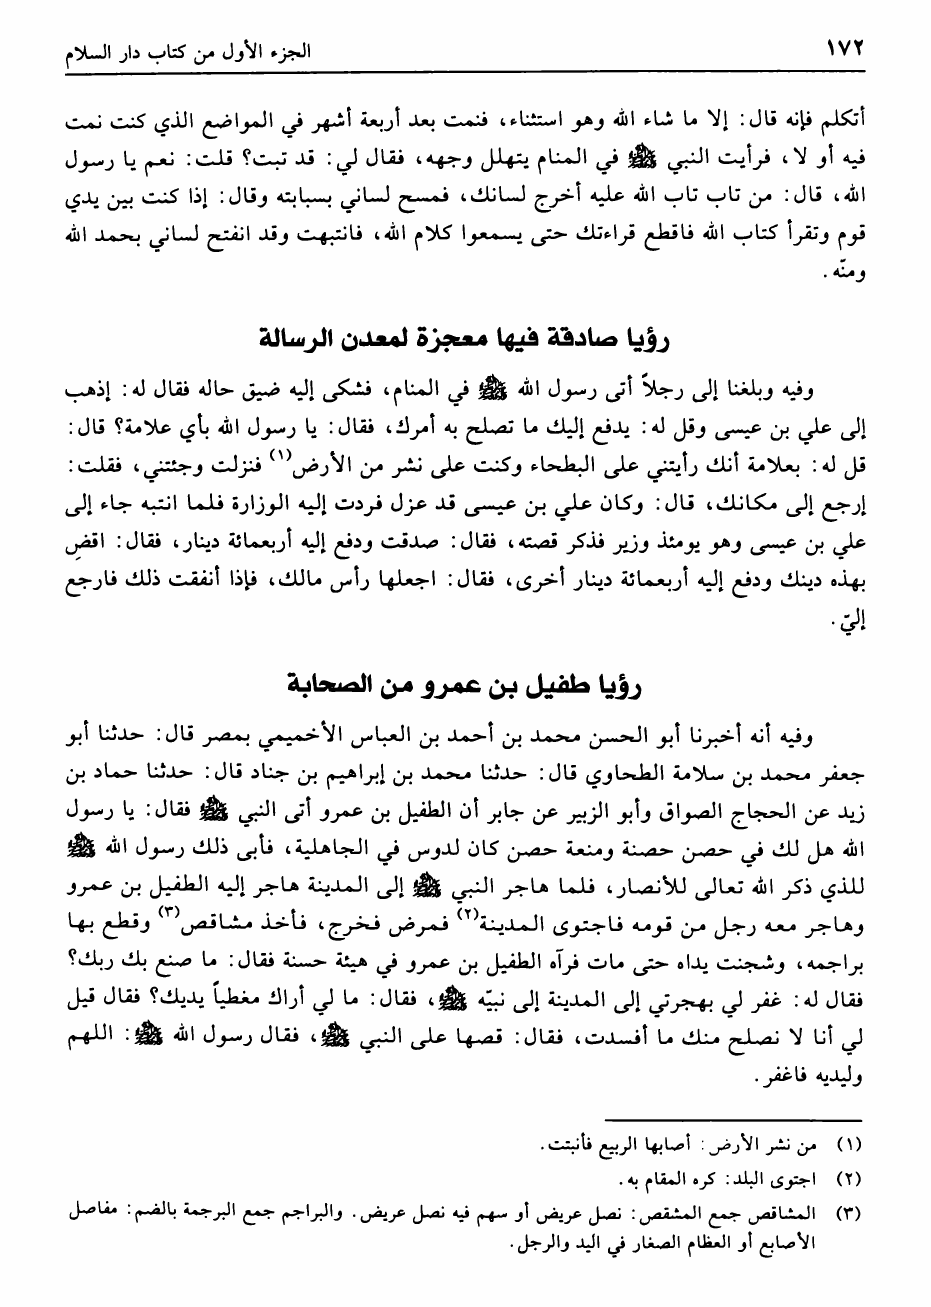 ١٧٢ الجزء الأول من كتاب دار السلام
أتكلم فإنه قال: إلا ما شاء الله وهو استثناء، فنمت بعد أربعة أشهر في المواضع الذي كنت نمت
فيه أو لا، فرأيت النبي ﷺ في المنام يتهلل وجهه، فقال لي: قد تبت؟ قلت: نعم يا رسول
الله، قال: من تاب تاب الله عليه أخرج لسانك، فمسح لساني بسبابته وقال: إذا كنت بين يدي
قوم وتقرأ كتاب الله فاقطع قراءتك حتى يسمعوا كلام الله، فانتبهت وقد انفتح لساني بحمد الله
ومنّه.
رؤيا صادقة فيها معجزة لمعدن الرسالة
وفيه وبلغنا إلى رجلاً أتى رسول الله ﷺ في المنام، فشكى إليه ضيق حاله فقال له: إذهب
إلى علي بن عيسى وقل له: يدفع إليك ما تصلح به أمرك، فقال: يا رسول الله بأي علامة؟ قال:
قل له: بعلامة أنك رأيتني على البطحاء وكنت على نشر من الأرض(١) فنزلت وجئتني، فقلت:
إرجع إلى مكانك، قال: وكان علي بن عيسى قد عزل فردت إليه الوزارة فلما انتبه جاء إلى
علي بن عيسى وهو يومئذ وزير فذكر قصته، فقال: صدقت ودفع إليه أربعمائة دينار، فقال: اقضِ
بهذه دينك ودفع إليه أربعمائة دينار أخرى، فقال: اجعلها رأس مالك، فإذا أنفقت ذلك فارجع
إليّ.
رؤيا طفيل بن عمرو من الصحابة
وفيه أنه أخبرنا أبو الحسن محمد بن أحمد بن العباس الأخميمي بمصر قال: حدثنا أبو
جعفر محمد بن سلامة الطحاوي قال: حدثنا محمد بن إبراهيم بن جناد قال: حدثنا حماد بن
زيد عن الحجاج الصواق وأبو الزبير عن جابر أن الطفيل بن عمرو أتى النبي ﷺ فقال: يا رسول
الله هل لك في حصن حصنة ومنعة حصن كان لدوس في الجاهلية، فأبى ذلك رسول الله ﷺ
للذي ذكر الله تعالى للأنصار، فلما هاجر النبي ﷺ إلى المدينة هاجر إليه الطفيل بن عمرو
وهاجر معه رجل من قومه فاجتوى المدينة(٢) فمرض فخرج، فأخذ مشاقص(٣) وقطع بها
براجمه، وشجنت يداه حتى مات فرآه الطفيل بن عمرو في هيئة حسنة فقال: ما صنع بك ربك؟
فقال له: غفر لي بهجرتي إلى المدينة إلى نبيّه ﷺ، فقال: ما لي أراك مغطياً يديك؟ فقال قيل
لي أنا لا نصلح منك ما أفسدت، فقال: قصها على النبي ﷺ، فقال رسول الله ﷺ: اللهم
وليديه فاغفر.
(١) من نشر الأرض: أصابها الربيع فأنبتت.
(٢) اجتوى البلد: كره المقام به.
(٣) المشاقص جمع المشقص: نصل عريض أو سهم فيه نصل عريض. والبراجم جمع البرجمة بالضم: مفاصل
الأصابع أو العظام الصغار في اليد والرجل.